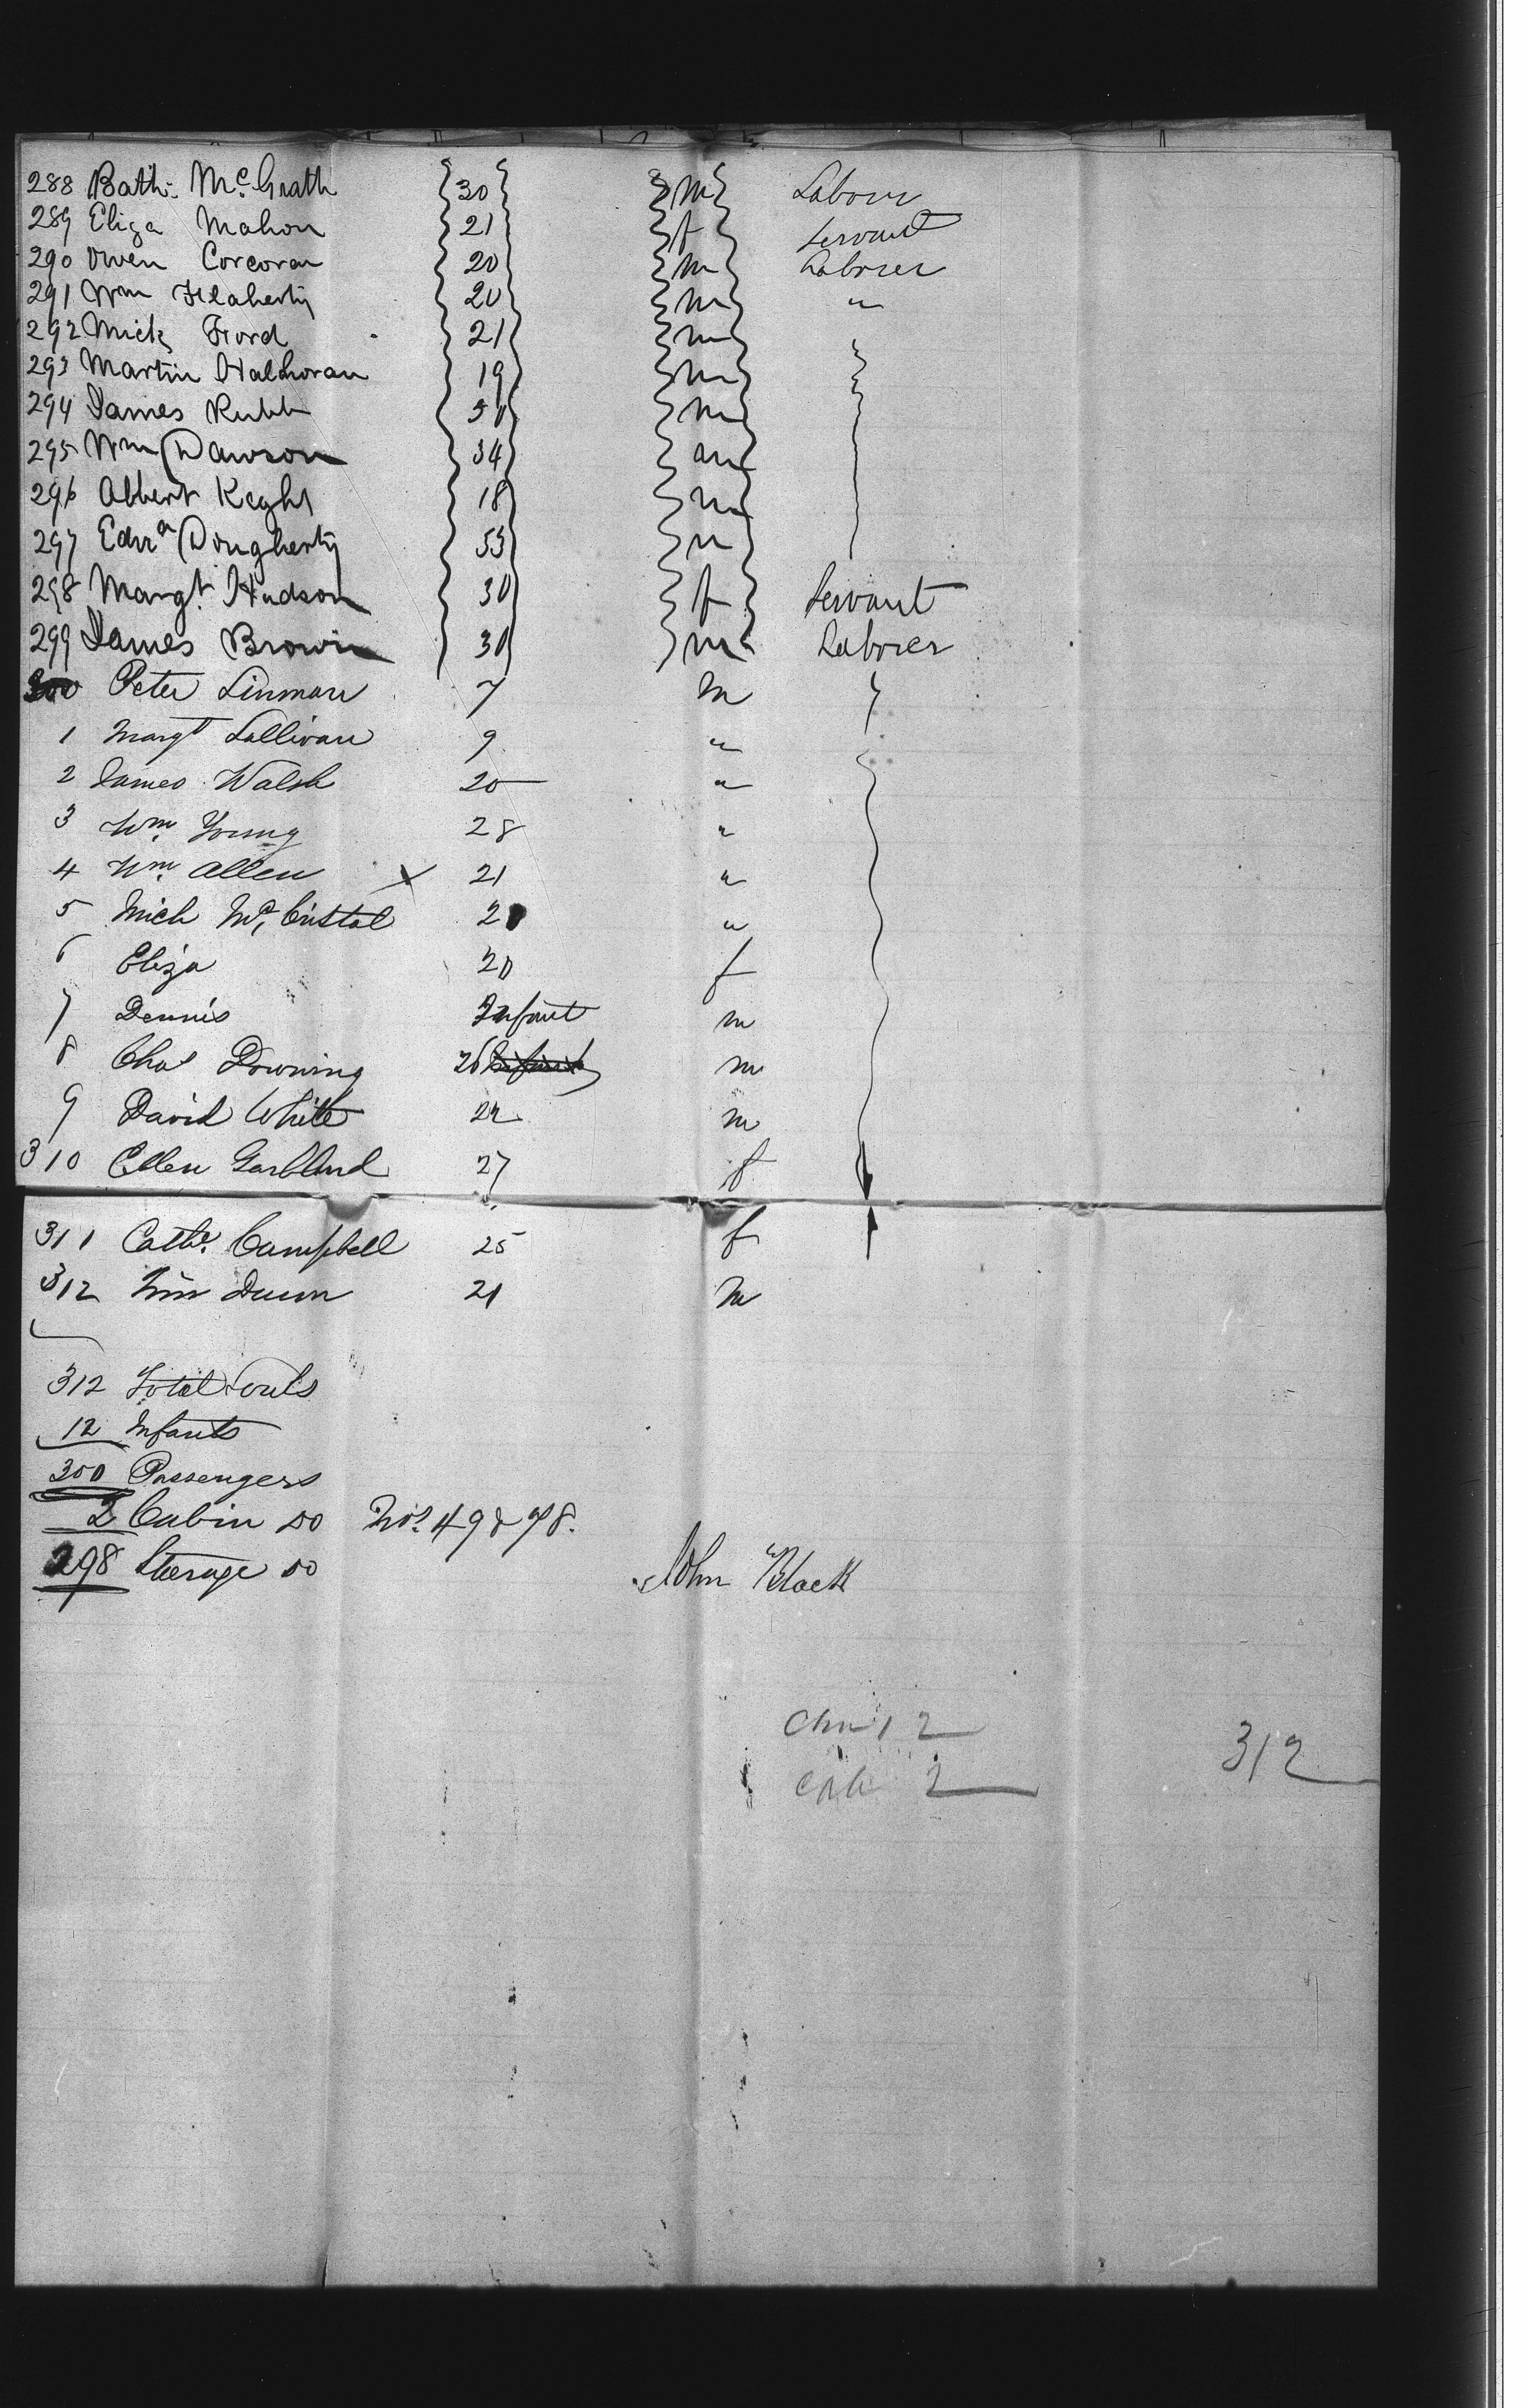 288 Bath: Mc. Grath 30 m Labour
289 Eliza Mahon 21 f Servant
290 Owen Corcoran 20 m Laborer
291 Wm Flaherty 20 m "
292 Mick Ford 21 m
293 Martin Halhoran 19 m
294 James Rubb 50 m
295 Wm Dawson 34 m
296 Albert Keght 18 m
297 Dougherty 53 m
298 Margt. Hudson 30 f Servant
299 James Brown 30 m Laborer
300 Peter Linman 7 m
1 Margt Sullivan 9 "
2 James Walsh 20 "
3 Wm. Young 28 "
4 Wm. Allen x 21 "
5 Mich Mc. Cristal 20 "
6 Eliza 20 f
7 Dennis Infant m
8 Chas Downing 26 m
9 David White 22 m
310 Ellen 27 f
311 Cathe. Campbell 25 f
312 Dunn 21 m
312 Total Souls
12 Infants
300 Passengers
2 Cabin do Nos. 49 & 78.
298 Steerage do
John Black
Chn 12
Cab 2
312